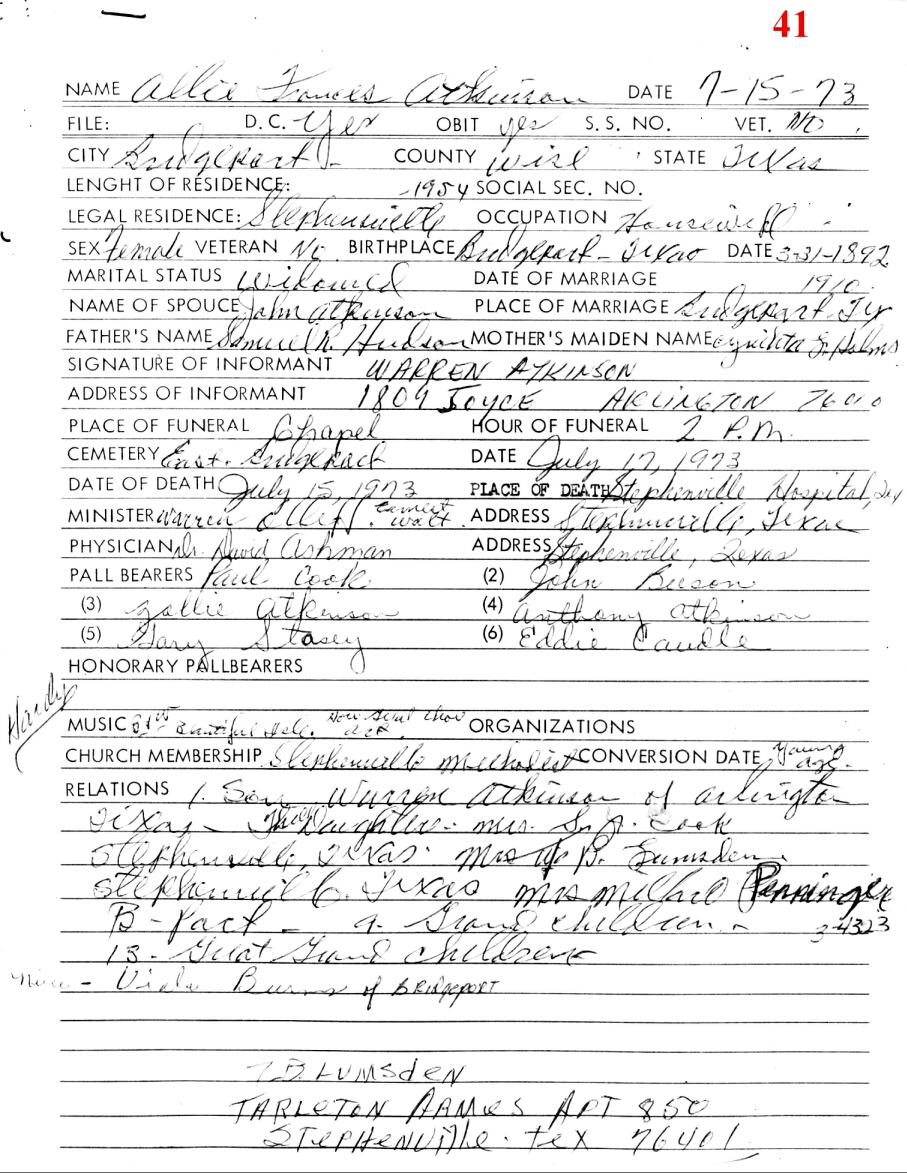 41
NAME Allie Frances Atkinson DATE 7-15-73
FILE: D.C. Yes OBIT yes S.S. NO. VET. No.
CITY Bridgeport - COUNTY Wise STATE Texas
LENGHT OF RESIDENCE: -1954 SOCIAL SEC. NO.
LEGAL RESIDENCE: Stephenville OCCUPATION Housewife
SEX Female VETERAN No BIRTHPLACE Bridgeport - Texas DATE 3-31-1892
MARITAL STATUS Widowed DATE OF MARRIAGE 1910
NAME OF SPOUCE John Atkinson PLACE OF MARRIAGE Bridgeport Tx
FATHER'S NAME Samuel R. Hudson MOTHER'S MAIDEN NAME Holms
SIGNATURE OF INFORMANT WARREN ATKINSON
ADDRESS OF INFORMANT 1809 JOYCE ARLINGTON 76010
PLACE OF FUNERAL Chapel HOUR OF FUNERAL 2 P.M.
CEMETERY East. Bridgeport DATE July 17, 1973
DATE OF DEATH July 15, 1973 PLACE OF DEATH Stephenville Hospital, Tex
MINISTER Warren ADDRESS Stephenville, Texas
PHYSICIAN Dr. David Ashman ADDRESS Stephenville, Texas
PALL BEARERS Paul Cook (2) John Beeson
(3) Zollie Atkinson (4) Anthony Atkinson
(5) Gary Stasey (6) Eddie Caudle
HONORARY PALLBEARERS
Hardy
MUSIC Beautiful Isle. How Great Thou Art. ORGANIZATIONS
CHURCH MEMBERSHIP Stephenville Methodist CONVERSION DATE Young age.
RELATIONS 1. Son Warren Atkinson of Arlington
Texas - Daughters - Mrs. Cook
Stephenville, Texas. Mrs B. Lumsden
Stephenville, Texas Mrs Millard Penninger
B-Port - 9. Grand children - 3-4323
13 - Great Grand children
- Burns of BRidgeport
T.B. LUMSDEN
TARLETON ARMES APT 850
STEPHENVIlle. tex 76401